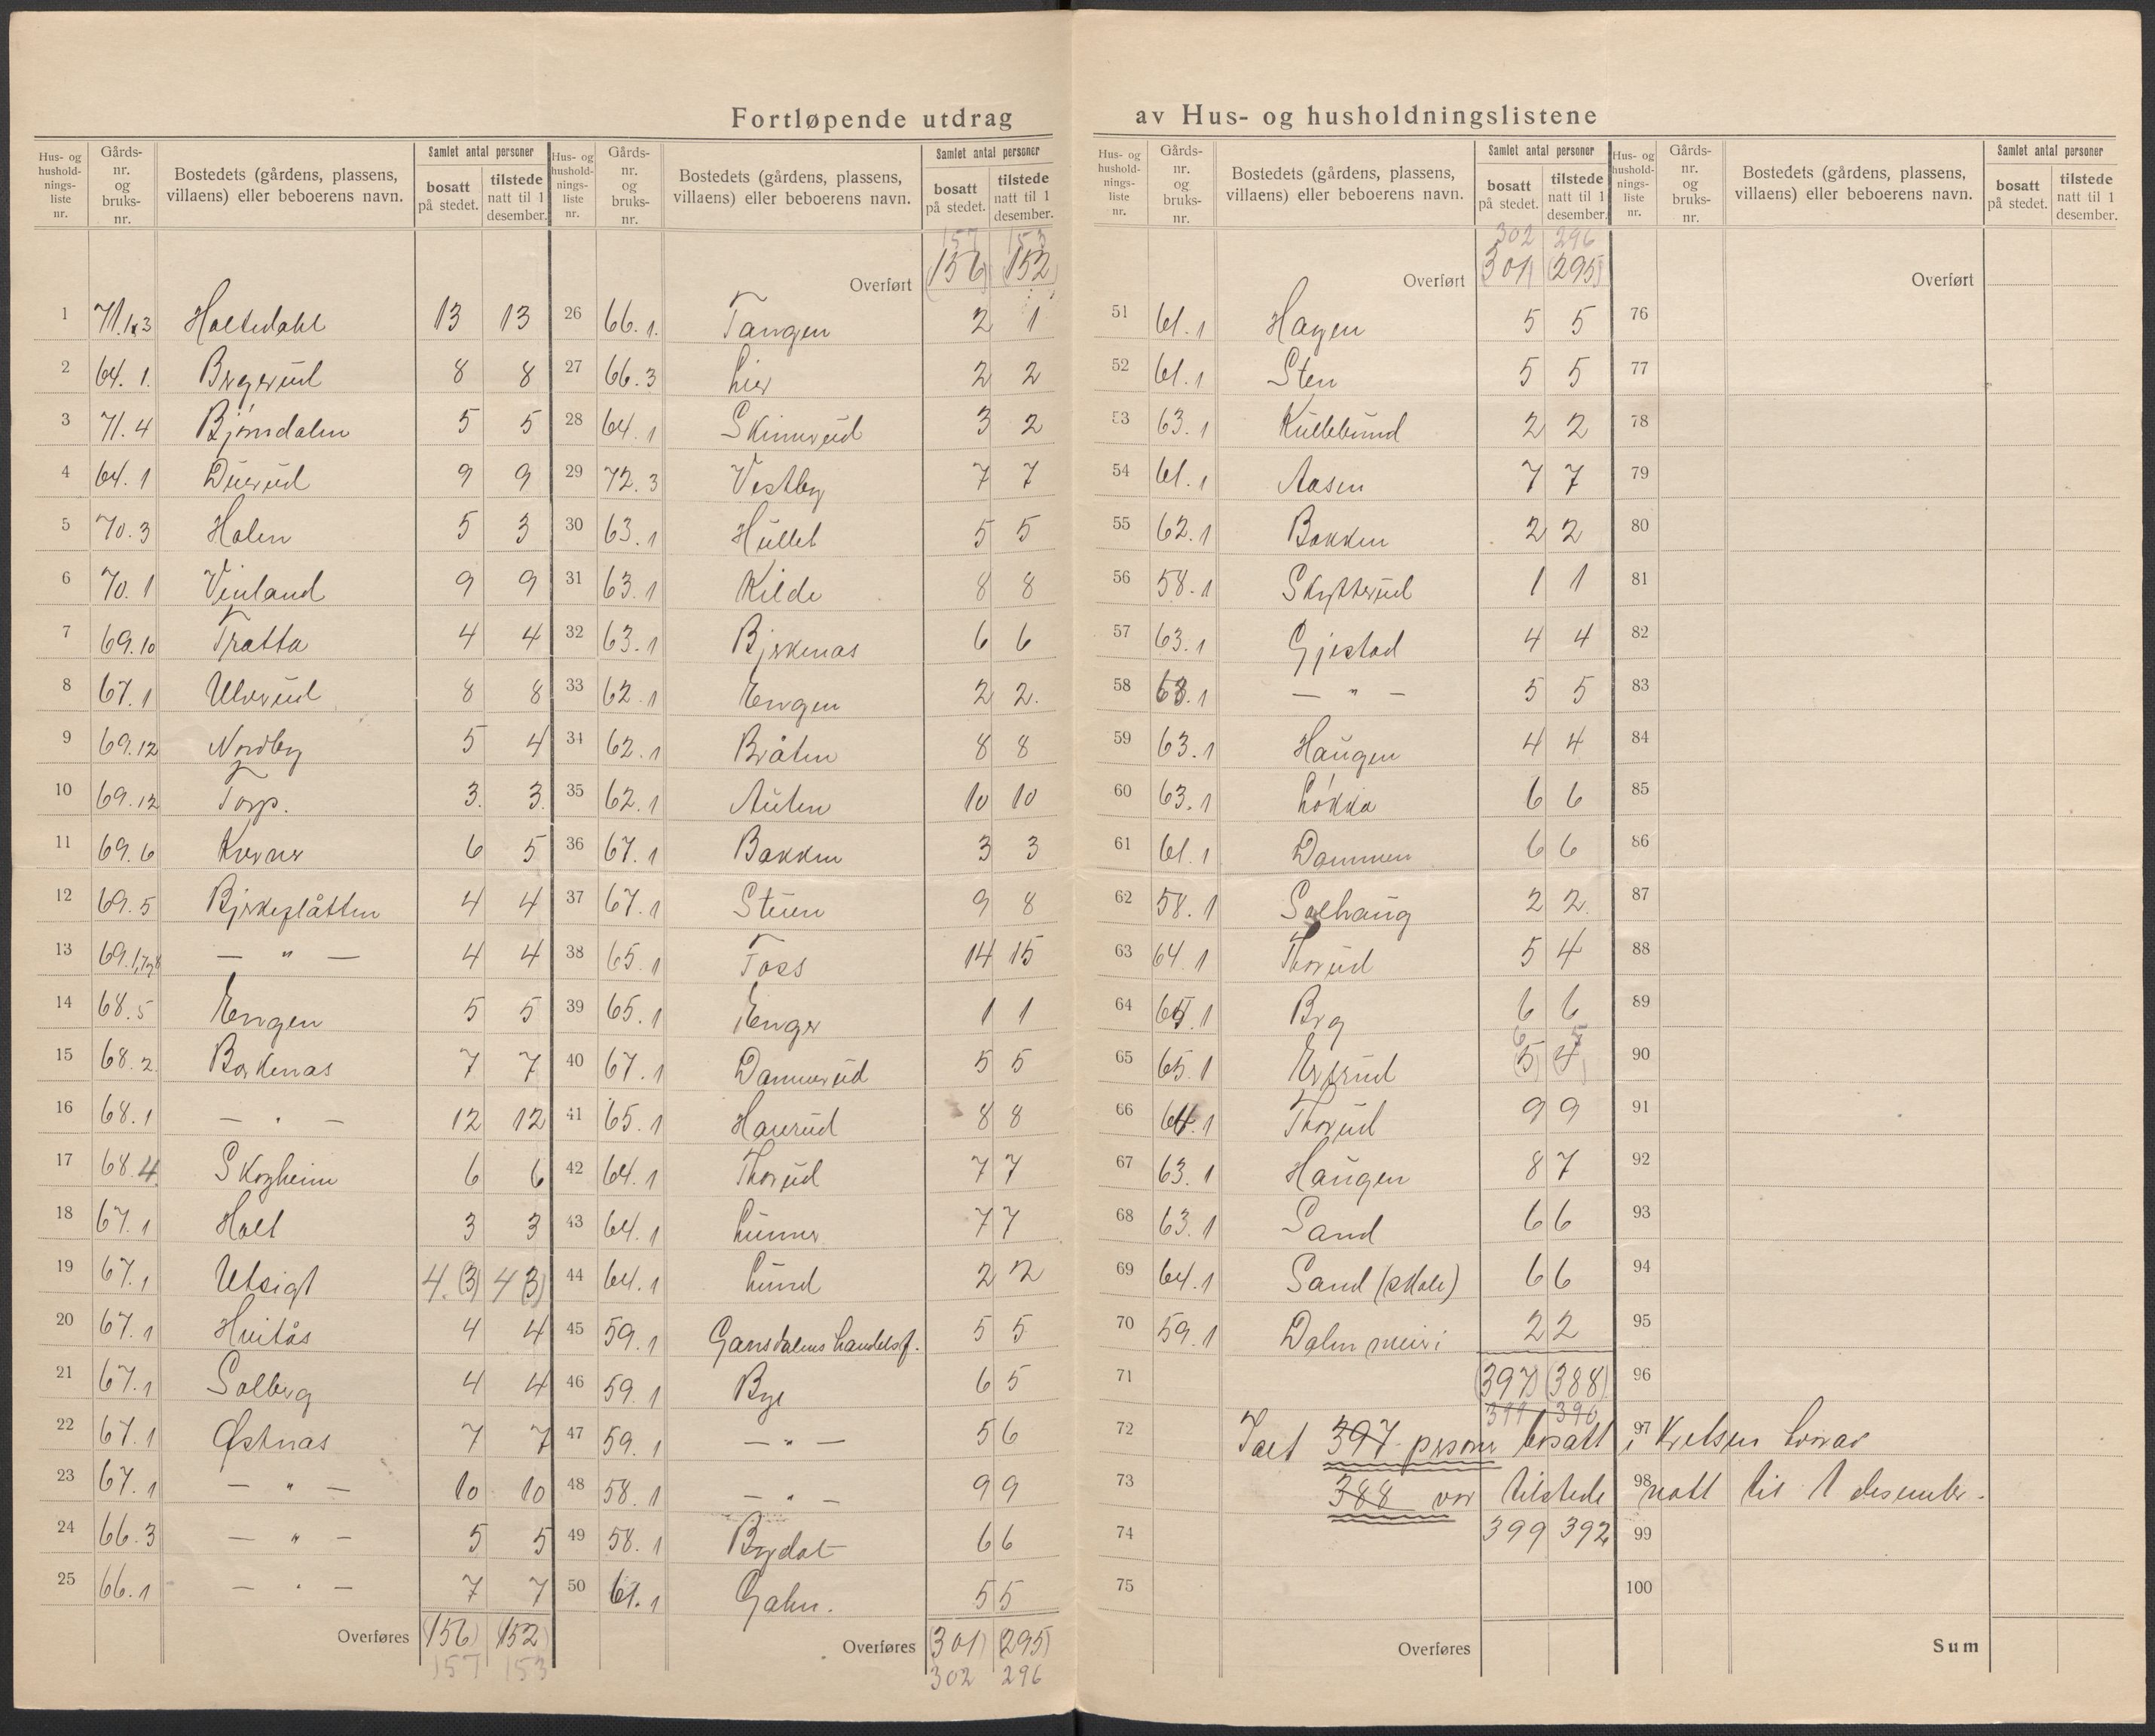 Fortløpende utdrag av Hus- og husholdningslistene
Hus- og husholdningsliste nr. | Gårdsnr. og bruksnr. | Bostedets (gårdens, plassens, villaens) eller beboerens navn. | Samlet antal personer | bosatt på stedet. | tilstede natt til 1 desember.
1 71.1x3 Holtedahl 13 13
2 64.1. Bergerud 8 8
3 71.4 Bjørndalen 5 5
4 64.1 Duerud 9 9
5 70.3 Holen 5 3
6 70.1 Vinland 9 9
7 69.10 Tratta 4 4
8 67.1 Ulverud 8 8
9 69.12 Nordby 5 4
10 69.12 Torp. 3. 3.
11 69.6 Kverner 6 5
12 69.5 Bjerkeslåtten 4 4
13 69.1,7,8 — " — 4 4
14 68.5 Engen 5 5
15 68.2 Borkenas 7 7
16 68.1 — " — 12 12
17 68.4 Skogheim 6 6
18 67.1 Holt 3 3
19 67.1 Utsigt 4.(3) 4(3)
20 67.1 Huitås 4 4
21 67.1 Solberg 4 4
22 67.1 Østnas 7 7
23 67.1 — " — 10 10
24 66.3 — " — 5 5
25 66.1 — " — 7 7
Overføres (156) (152)
157 153
Hus- og husholdningsliste nr. | Gårdsnr. og bruksnr. | Bostedets (gårdens, plassens, villaens) eller beboerens navn. | Samlet antal personer | bosatt på stedet. | tilstede natt til 1 desember.
157 153
Overført (156) (152)
26 66.1. Tangen 2 1
27 66.3 Lier 2 2
28 64.1 Skinnerud 3 2
29 72.3 Vestby 7 7
30 63.1 Hullet 5 5
31 63.1 Kilde 8 8
32 63.1 Bjerkenas 6 6
33 62.1 Engen 2 2.
34 62.1 Bråten 8 8
35 62.1 Auten 10 10
36 67.1 Bakken 3 3
37 67.1 Stuen 9 8
38 65.1 Foss 14 15
39 65.1 Enger 1 1
40 67.1 Dammerud 5 5
41 65.1 Haverud 8 8
42 64.1 Thorud 7 7
43 64.1 Lunner 7 7
44 64.1 Lund 2 2
45 59.1 Gansdalens handelsf. 5 5
46 59.1 Bye 6 5
47 59.1 — " — 5 6
48 58.1 — " — 9 9
49 58.1 6 6
50 61.1 Galen. 5 5
Overføres (301) (295)
302 296
Hus- og husholdningsliste nr. | Gårdsnr. og bruksnr. | Bostedets (gårdens, plassens, villaens) eller beboerens navn. | Samlet antal personer | bosatt på stedet. | tilstede natt til 1 desember.
302 296
Overført (301) (295)
51 61.1 Hagen 5 5
52 61.1 Sten 5 5
53 63.1 Kullebund 2 2
54 61.1 Aasen 7 7
55 62.1 Bakken 2 2
56 58.1 Skytterud 1 1
57 63.1 Gjestad 4 4
58 63.1 — " — 5 5
59 63.1 Haugen 4 4
60 63.1 Løkka 6 6
61 61.1 Dammen 6 6
62 58.1 Solhaug 2 2
63 64.1 Thorud 5 4
64 65.1 Berg 6 6
6 5
65 65.1 (5) (4)
66 64.1 Thorud 9 9
67 63.1 Haugen 8 7
68 63.1 Sand 6 6
69 64.1 Sand (skole) 6 6
70 59.1 Dalen meieri 2 2
71 (397) (388)
399 390
72 Ialt 397 personer bosatt i Kretsen hvorav
73 388 var tilstede natt til 1 desember.
74 399 392
75
Overføres
Hus- og husholdningsliste nr. | Gårdsnr. og bruksnr. | Bostedets (gårdens, plassens, villaens) eller beboerens navn. | Samlet antal personer | bosatt på stedet. | tilstede natt til 1 desember.
Overført
76
77
78
79
80
81
82
83
84
85
86
87
88
89
90
91
92
93
94
95
96
97
98
99
100
Sum